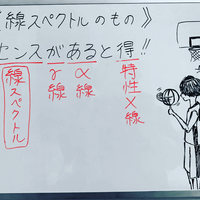 《線スペクトルのもの》
センスがあると得!!
特性X線
α線
γ線
線スペクトル